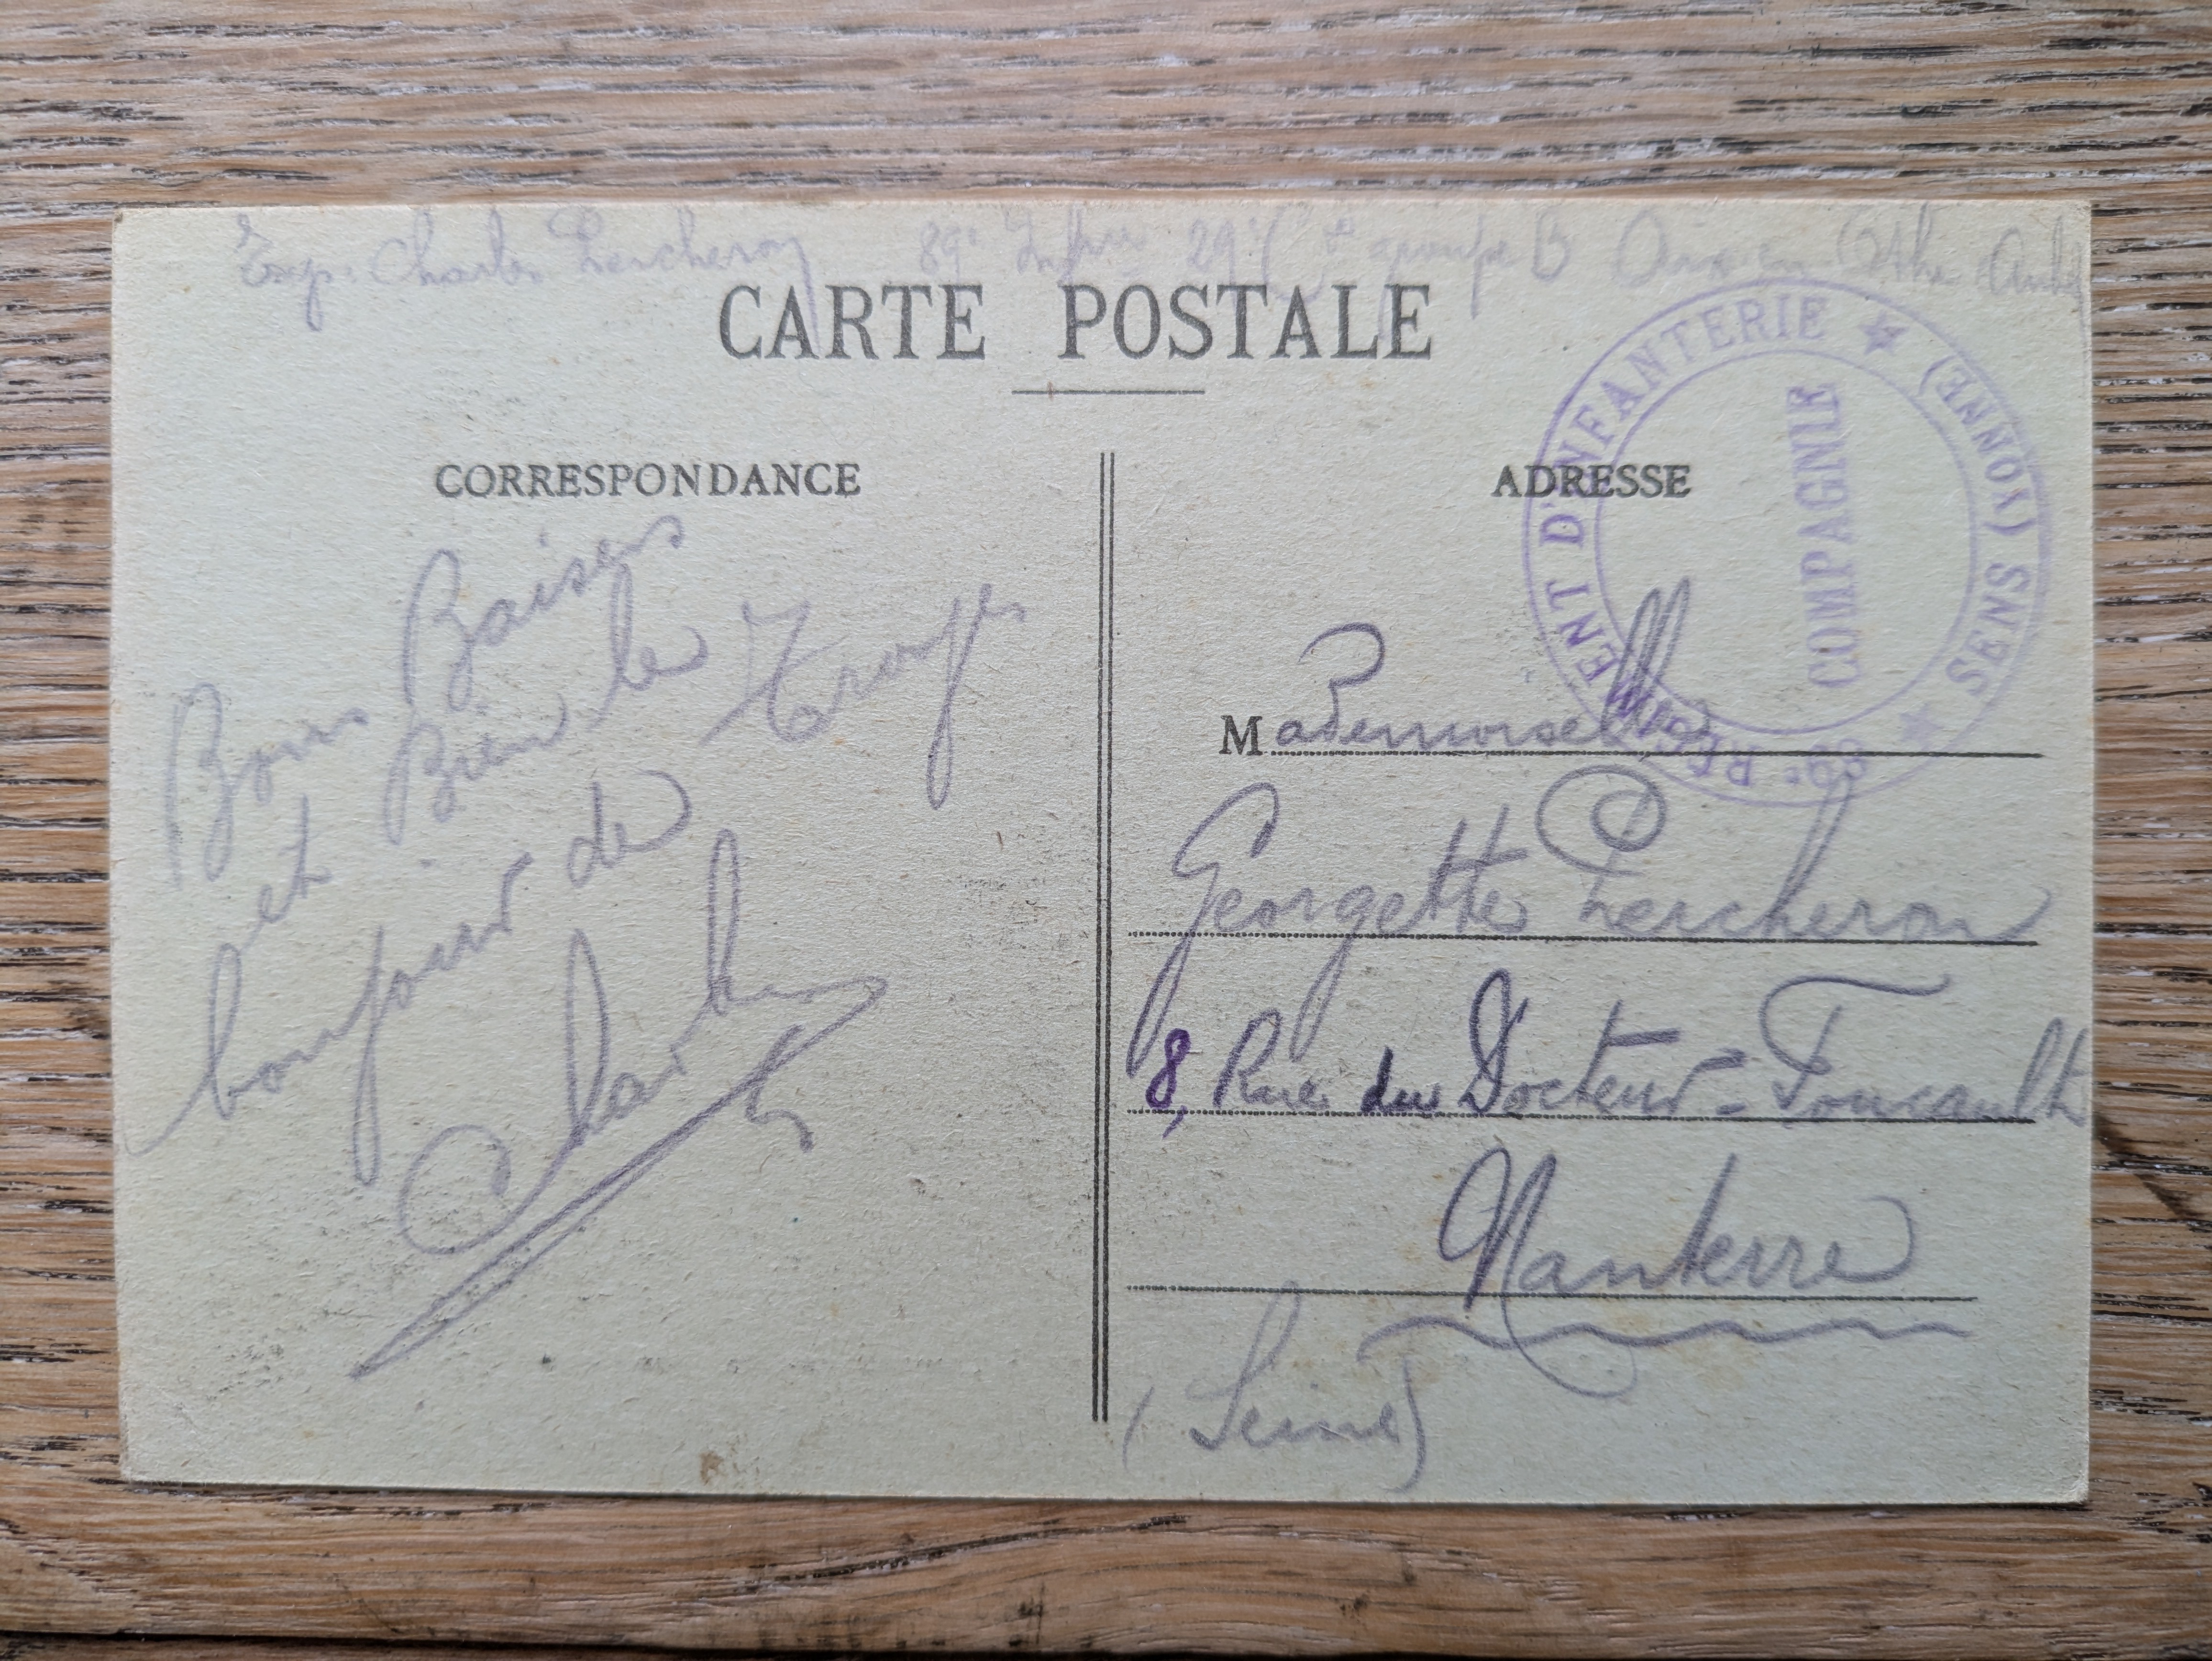 Exp. Charles Percheron 89e Inf 29e Cie groupe B Aix en Othe Aube
CARTE POSTALE
CORRESPONDANCE
Bons Baisers
et Bien le
bonjour de Troyes
Charles
ADRESSE
89e RÉGIMENT D'INFANTERIE
SENS (YONNE)
COMPAGNIE
Mademoiselle
Georgette Percheron
8, Rue du Docteur-Foucault
Nanterre
(Seine)